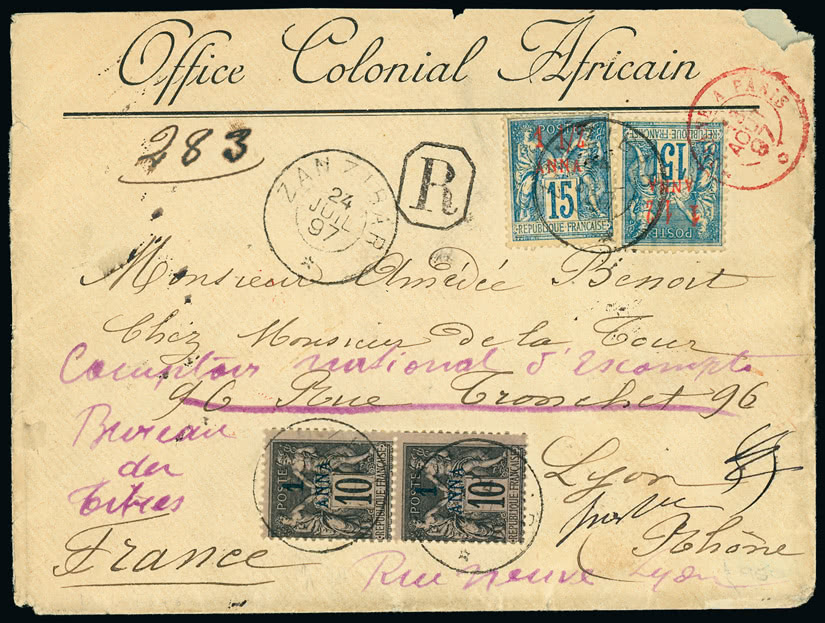 Office Colonial Africain
283
ZANZIBAR
24
JUIL
97
R
1 1/2
ANNA
POSTE
15
REPUBLIQUE FRANÇAISE
1 1/2
ANNA
POSTE
15
REPUBLIQUE FRANÇAISE
A PARIS
AOU
Monsieur Amédée Benoit
Chez Monsieur de la Tour
Comptoir national d'Escompte
96 Rue Tronchet 96
Bureau
des
titres
POSTE
1
ANNA
10
REPUBLIQUE FRANÇAISE
POSTE
1
ANNA
10
REPUBLIQUE FRANÇAISE
Lyon
Rhône
France
Rue neuve Lyon